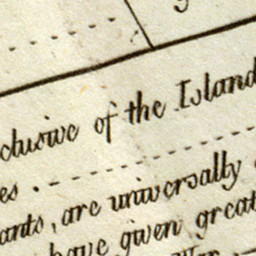 clusive of the Island
es . - - - - - - - - - -
ants, are universally
have given great